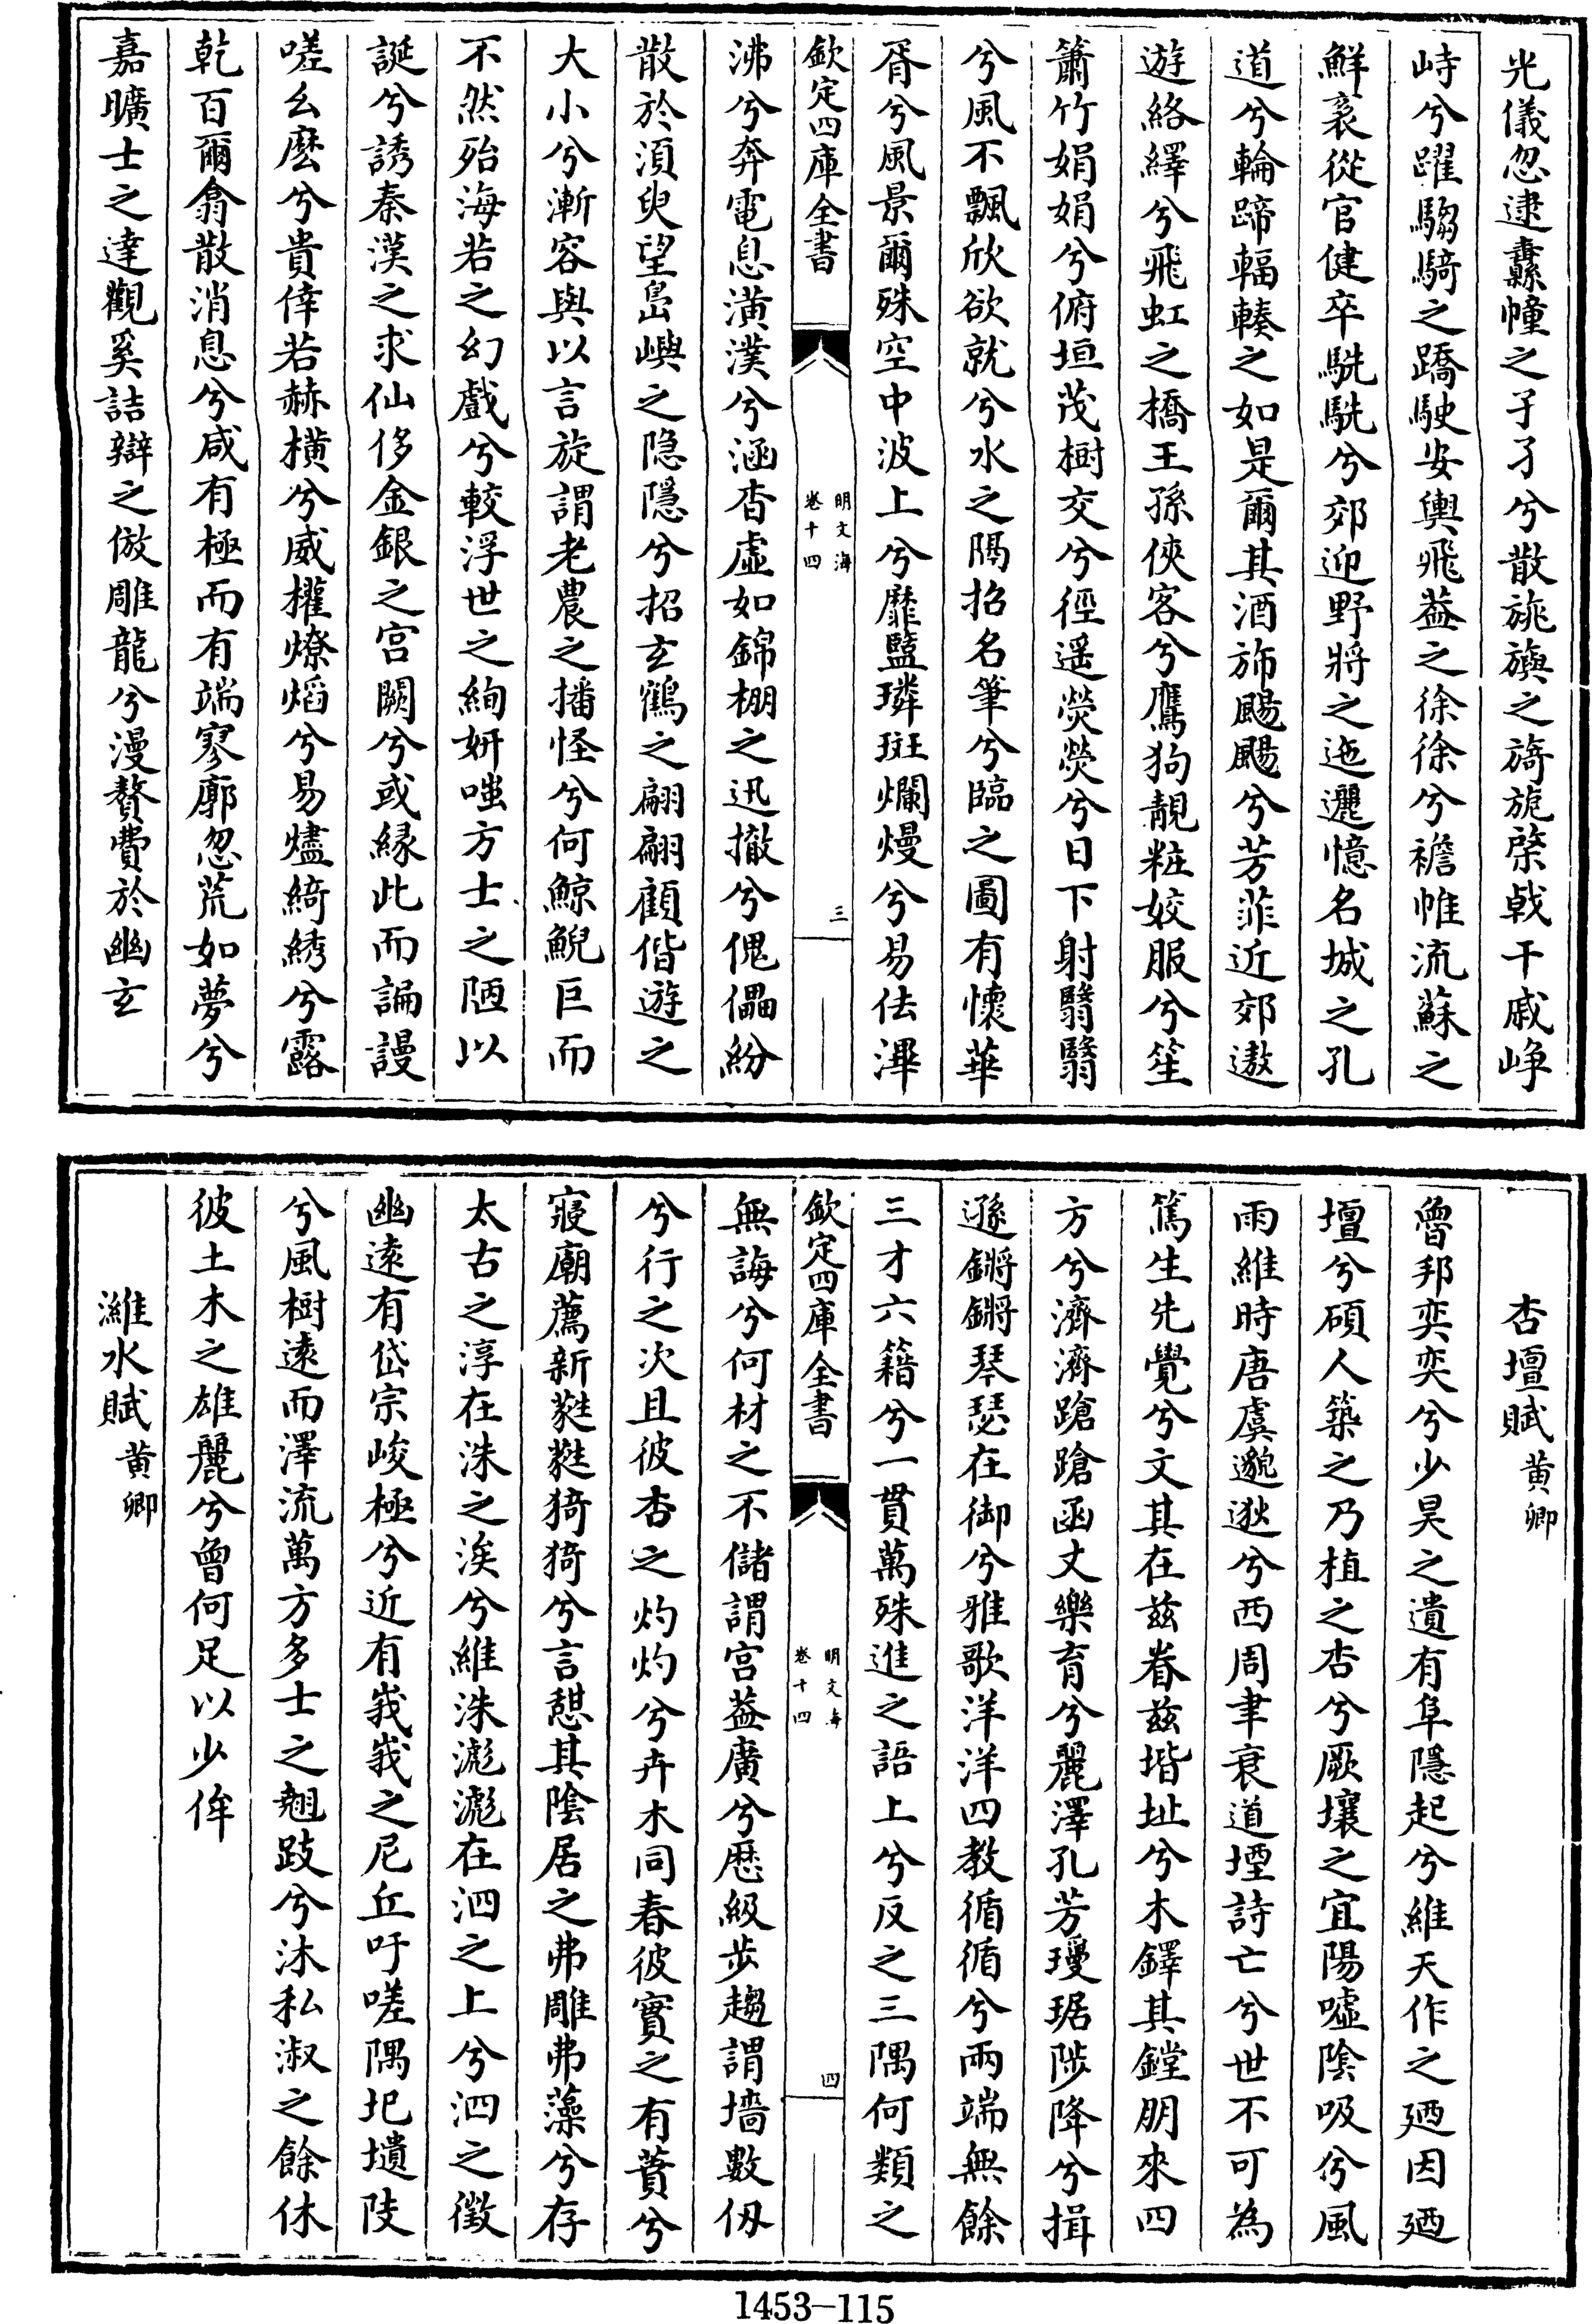 光儀忽逮纛幢之孑孑兮散旐旟之旖旎棨戟干戚崢
峙兮躍騶騎之蹻駛安輿飛葢之徐徐兮襜帷流蘇之
鮮袤從官健卒駪駪兮郊迎野將之迤邐憶名城之孔
道兮輪蹄輻輳之如是爾其酒斾颺颺兮芳菲近郊遨
遊絡繹兮飛虹之橋王孫俠客兮鷹狗靚粧姣服兮笙
簫竹娟娟兮俯垣茂樹交兮徑遥熒熒兮日下射翳翳
兮風不飄欣欲就兮水之隔招名筆兮臨之圖有懷華
胥兮風景爾殊空中波上兮靡盬璘斑爛熳兮易佉渾
欽定四庫全書
明文海
卷十四
三
沸兮奔電息潢濮兮涵杳虛如錦棚之迅撤兮傀儡紛
散於湏臾望島嶼之隐隱兮招玄鶴之翩翩顧偕遊之
大小兮漸容與以言旋謂老農之播怪兮何鯨鯢巨而
不然殆海若之幻戲兮較浮世之絢妍嗤方士之陋以
誕兮誘秦漢之求仙侈金銀之宫闕兮或縁此而諞謾
嗟幺麽兮貴倖若赫横兮威權燎熖兮易燼綺綉兮露
乾百爾翕散消息兮咸有極而有端寥廓忽荒如夢兮
嘉曠士之達觀奚詰辯之倣雕龍兮漫贅費於幽玄
杏壇賦 黄卿
魯邦奕奕兮少昊之遺有阜隱起兮維天作之廼因廼
壇兮碩人築之乃植之杏兮厥壤之宜陽噓陰吸兮風
雨維時唐虞邈逖兮西周聿衰道堙詩亡兮世不可為
篤生先覺兮文其在兹眷兹堦址兮木鐸其鏜朋來四
方兮濟濟蹌蹌函丈樂育兮麗澤孔芳瓊琚陟降兮揖
遜鏘鏘琴瑟在御兮雅歌洋洋四教循循兮兩端無餘
三才六籍兮一貫萬殊進之語上兮反之三隅何類之
欽定四庫全書
明文海
卷十四
四
無誨兮何材之不儲謂宫葢廣兮歴級步趨謂墻數仭
兮行之次且彼杏之灼灼兮卉木同春彼實之有蕡兮
寢廟薦新蕤蕤猗猗兮言憇其陰居之弗雕弗藻兮存
太古之淳在洙之涘兮維洙滮滮在泗之上兮泗之徵
幽逺有岱宗峻極兮近有峩峩之尼丘吁嗟隅圯壝陊
兮風樹逺而澤流萬方多士之翹跂兮沐私淑之餘休
彼土木之雄麗兮曾何足以少侔
濰水賦 黄卿
1453-115